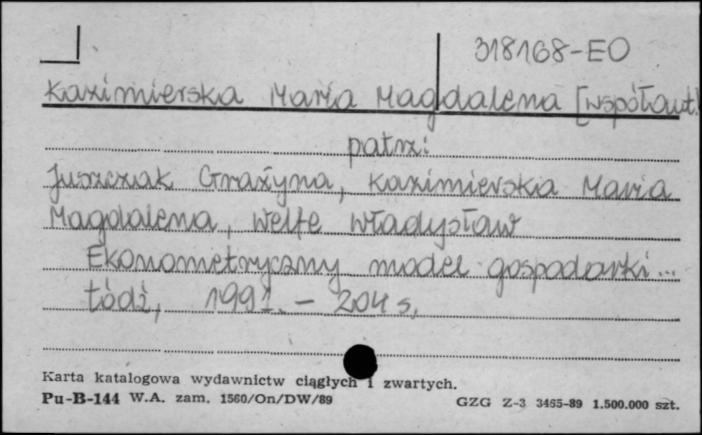 318168-EO
Kazimierska Maria Magdalena [współaut.]
patrz:
Juszczak Grażyna, Kazimierska Maria
Magdalena, Welfe Władysław
Ekonometryczny model gospodarki...
Łódź, 1991. - 204 s.
Karta katalogowa wydawnictw ciągłych i zwartych.
Pu-B-144 W.A. zam. 1560/On/DW/89 GZG Z-3 3465-89 1.500.000 szt.